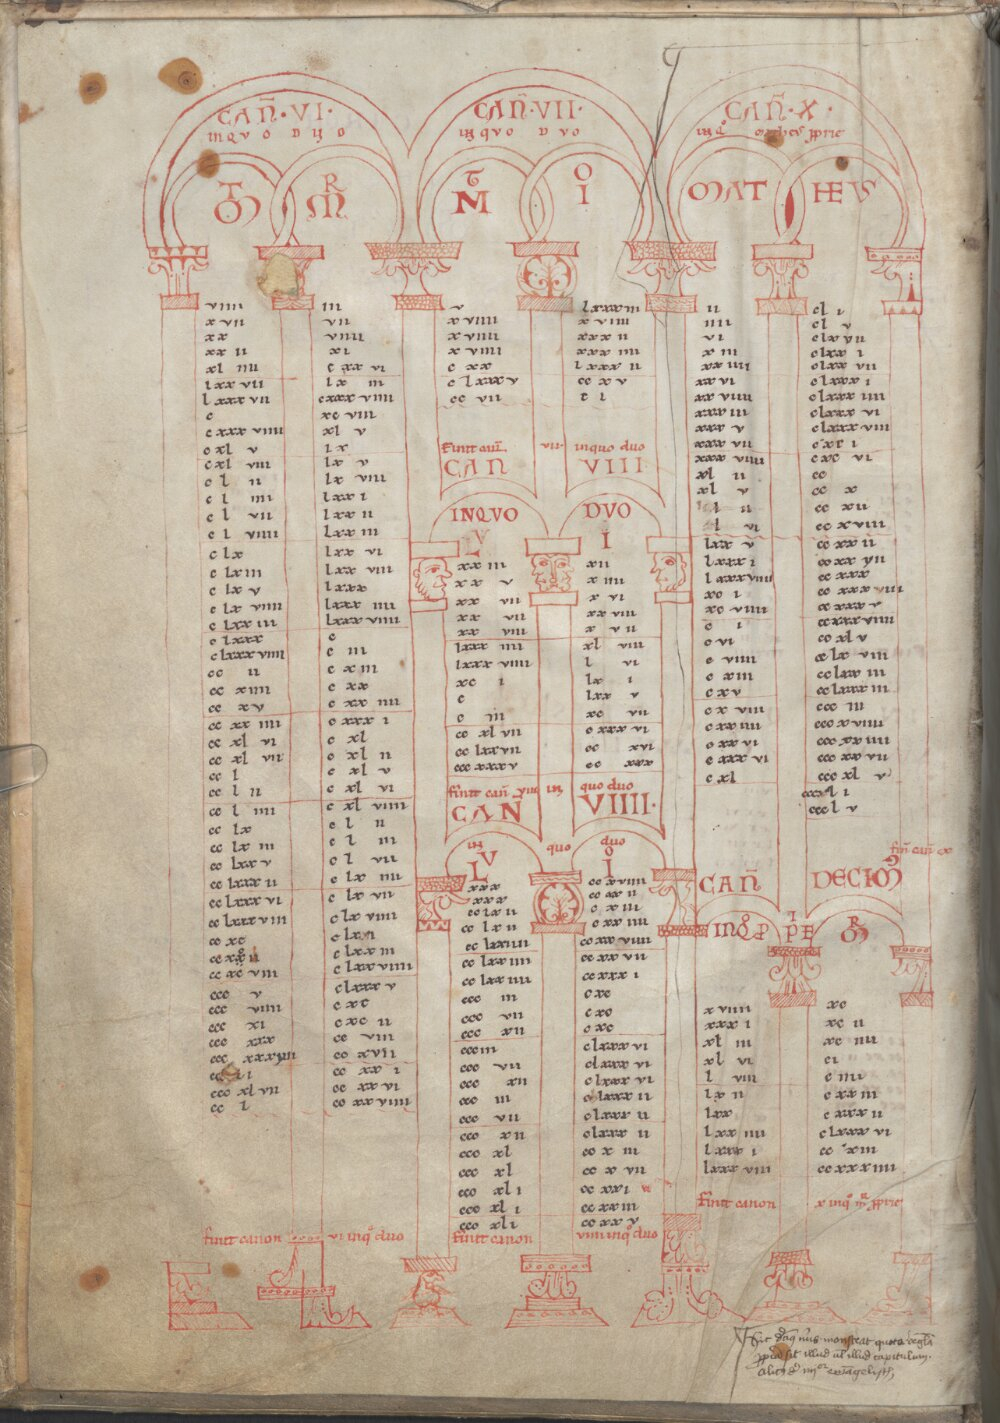 CAN̄·VI·
IN QVO DUO
MT MR
viiii iii
xvii vii
xx viiii
xx ii xi
xl iiii cxx vi
lxx vii lx iii
lxxx vii cxxx viiii
c xc viii
cxxx viiii xl v
cxl v lx
cxl viii lx v
cl ii lx viii
cl iiii lxx i
cl vii lxx ii
cl viiii lxx iii
clx lxx vi
clxiii lxx viii
clx v lxxx
clx viiii lxxx iiii
clxx iii lxxx viiii
clxxx c
clxxxviiii c iii
cc ii cxiii
cc xiiii cxx
cc xv cxx iiii
cc xx iiii cxxx i
cc xl vi cxl
cc xl vii cxl ii
cc l cxl v
cc l ii cxl vi
cc l iiii cxl viiii
cc lx cl ii
cc lx iii cl iii
cc lxx v cl vii
cc lxxx ii clx iiii
cc lxxx vi clx vii
cc lxxxviii clx viiii
cc xc clxx i
clxx iii
cc xc viii clxx viiii
ccc v clxxx v
ccc viiii cxc
ccc xi cxc ii
ccc xxx cc viii
cc xvii
cc xx i
ccc xl vii cc xx vi
cc l cc xx viiii
finit canon vi inqͦ duo
CAN̄·VII·
IN QVO DVO
MT IO
v lxxxiii
xviiii xviiii
xviiii xxx ii
xviiii xxx iiii
cxx lxxx ii
clxxx v cc xv
cc vii c i
finit can̄ vii· inquo duo
CAN VIII
INQVO DVO
LV I
xx iii xii
xx v x iiii
xx vii x vi
xx vii xx viii
xx viii x vii
lxxx iiii xl viii
lxxx viiii l vi
xc i lx i
c lxx v
c iii xc vii
cc xl vii cxxx vi
cc lxxvii cc xvi
ccc xxxv cc xxx
finit can̄ viii in quo duo
CAN VIIII·
in quo duo
LV IO
cc lx ii cxiii
cc lx ii cxx iiii
cc lxx iiii ccxx vii
cc lxx iiii ccxxx i
ccc iii cxc
ccc vii cxc
ccc xii cxc
ccc iii clxxx vi
ccc vii clxxx vi
ccc xii clxxx vi
ccc iii clxxx ii
ccc vii clxxx ii
ccc xii clxxx ii
ccc xl cc x iii
ccc xl cc x vii
ccc xl i cc xx i
ccc xl i cc xx iii
ccc xl i cc xx v
finit canon viiii inqͦ duo
CAN̄·X·
inqͦ matheus ꝓprie
MAT HEVS
ii cl i
iiii cl v
vi clx vii
x iii clxx i
xx iiii clxx vii
xx vi clxxx i
xx viiii clxxx iiii
xxx iii clxxx vi
xxx v clxxx viii
xxx vii cxc i
xxx viiii cxc vi
xl ii cc
xl v cc x
l ii cc xii
l vi cc xviii
lxx v cc xx ii
lxxx i cc xx vii
lxxxviiii cc xxx
xc i cc xxx iii
xc viiii cc xxx v
c i cc xxx viiii
c vi cc xl v
c viiii cc lx viii
c xiii cc lxx iii
c xv cc lxxx iii
cx viii ccc iii
cxx iiii ccc xviiii
cxx vi ccc xx iiii
cxxx vi ccc xx vii
cxl ccc xl v
ccc l i
ccc l v
fiń can̄ x
CAN̄ DECIM9
INQͦ P PE MR
xviiii xc
xxx i xc ii
xl iii xc iiii
xl vi ci
l viii c iiii
lx ii cxx iii
lxx cxxx ii
lxx iiii clxxx vi
lxxx i cc xiii
lxxx viii cc xxx iiii
finit canon x inqͦ mr ꝓprie